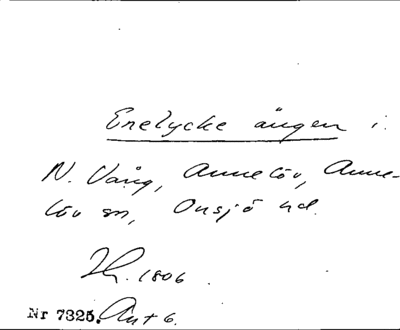 Enelycke ängen i.
N. Vång, Annelöv, Anne-
löv sn, Onsjö hd.
1806.
Nr 7325. Akt 6.